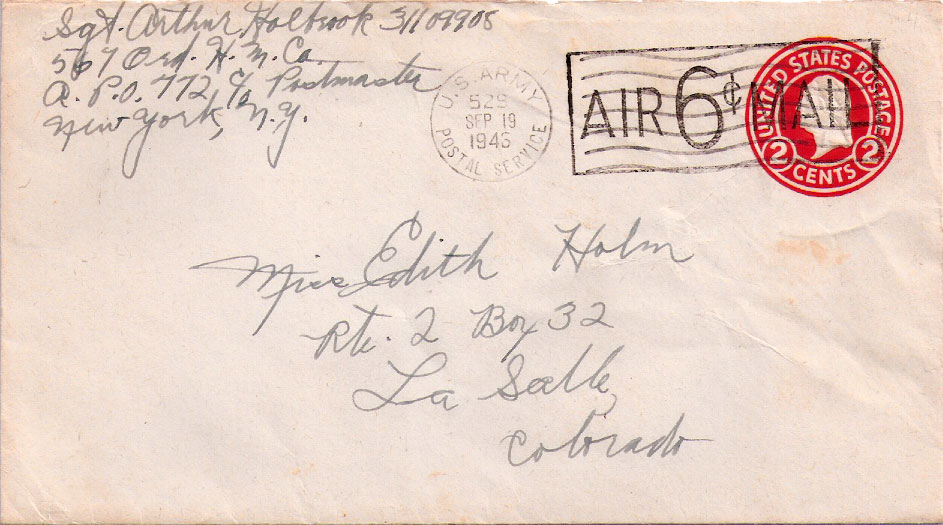 Sgt. Arthur Holbrook 31109908
567 Ord. H. M. Co.
A. P.O. 772 c/o Postmaster
New York, N.Y.
U.S. ARMY
529
SEP 19
1945
POSTAL SERVICE
AIR 6¢ MAIL
UNITED STATES POSTAGE
2 CENTS 2
Miss Edith Holm
Rte. 2 Box 32
La Salle,
Colorado